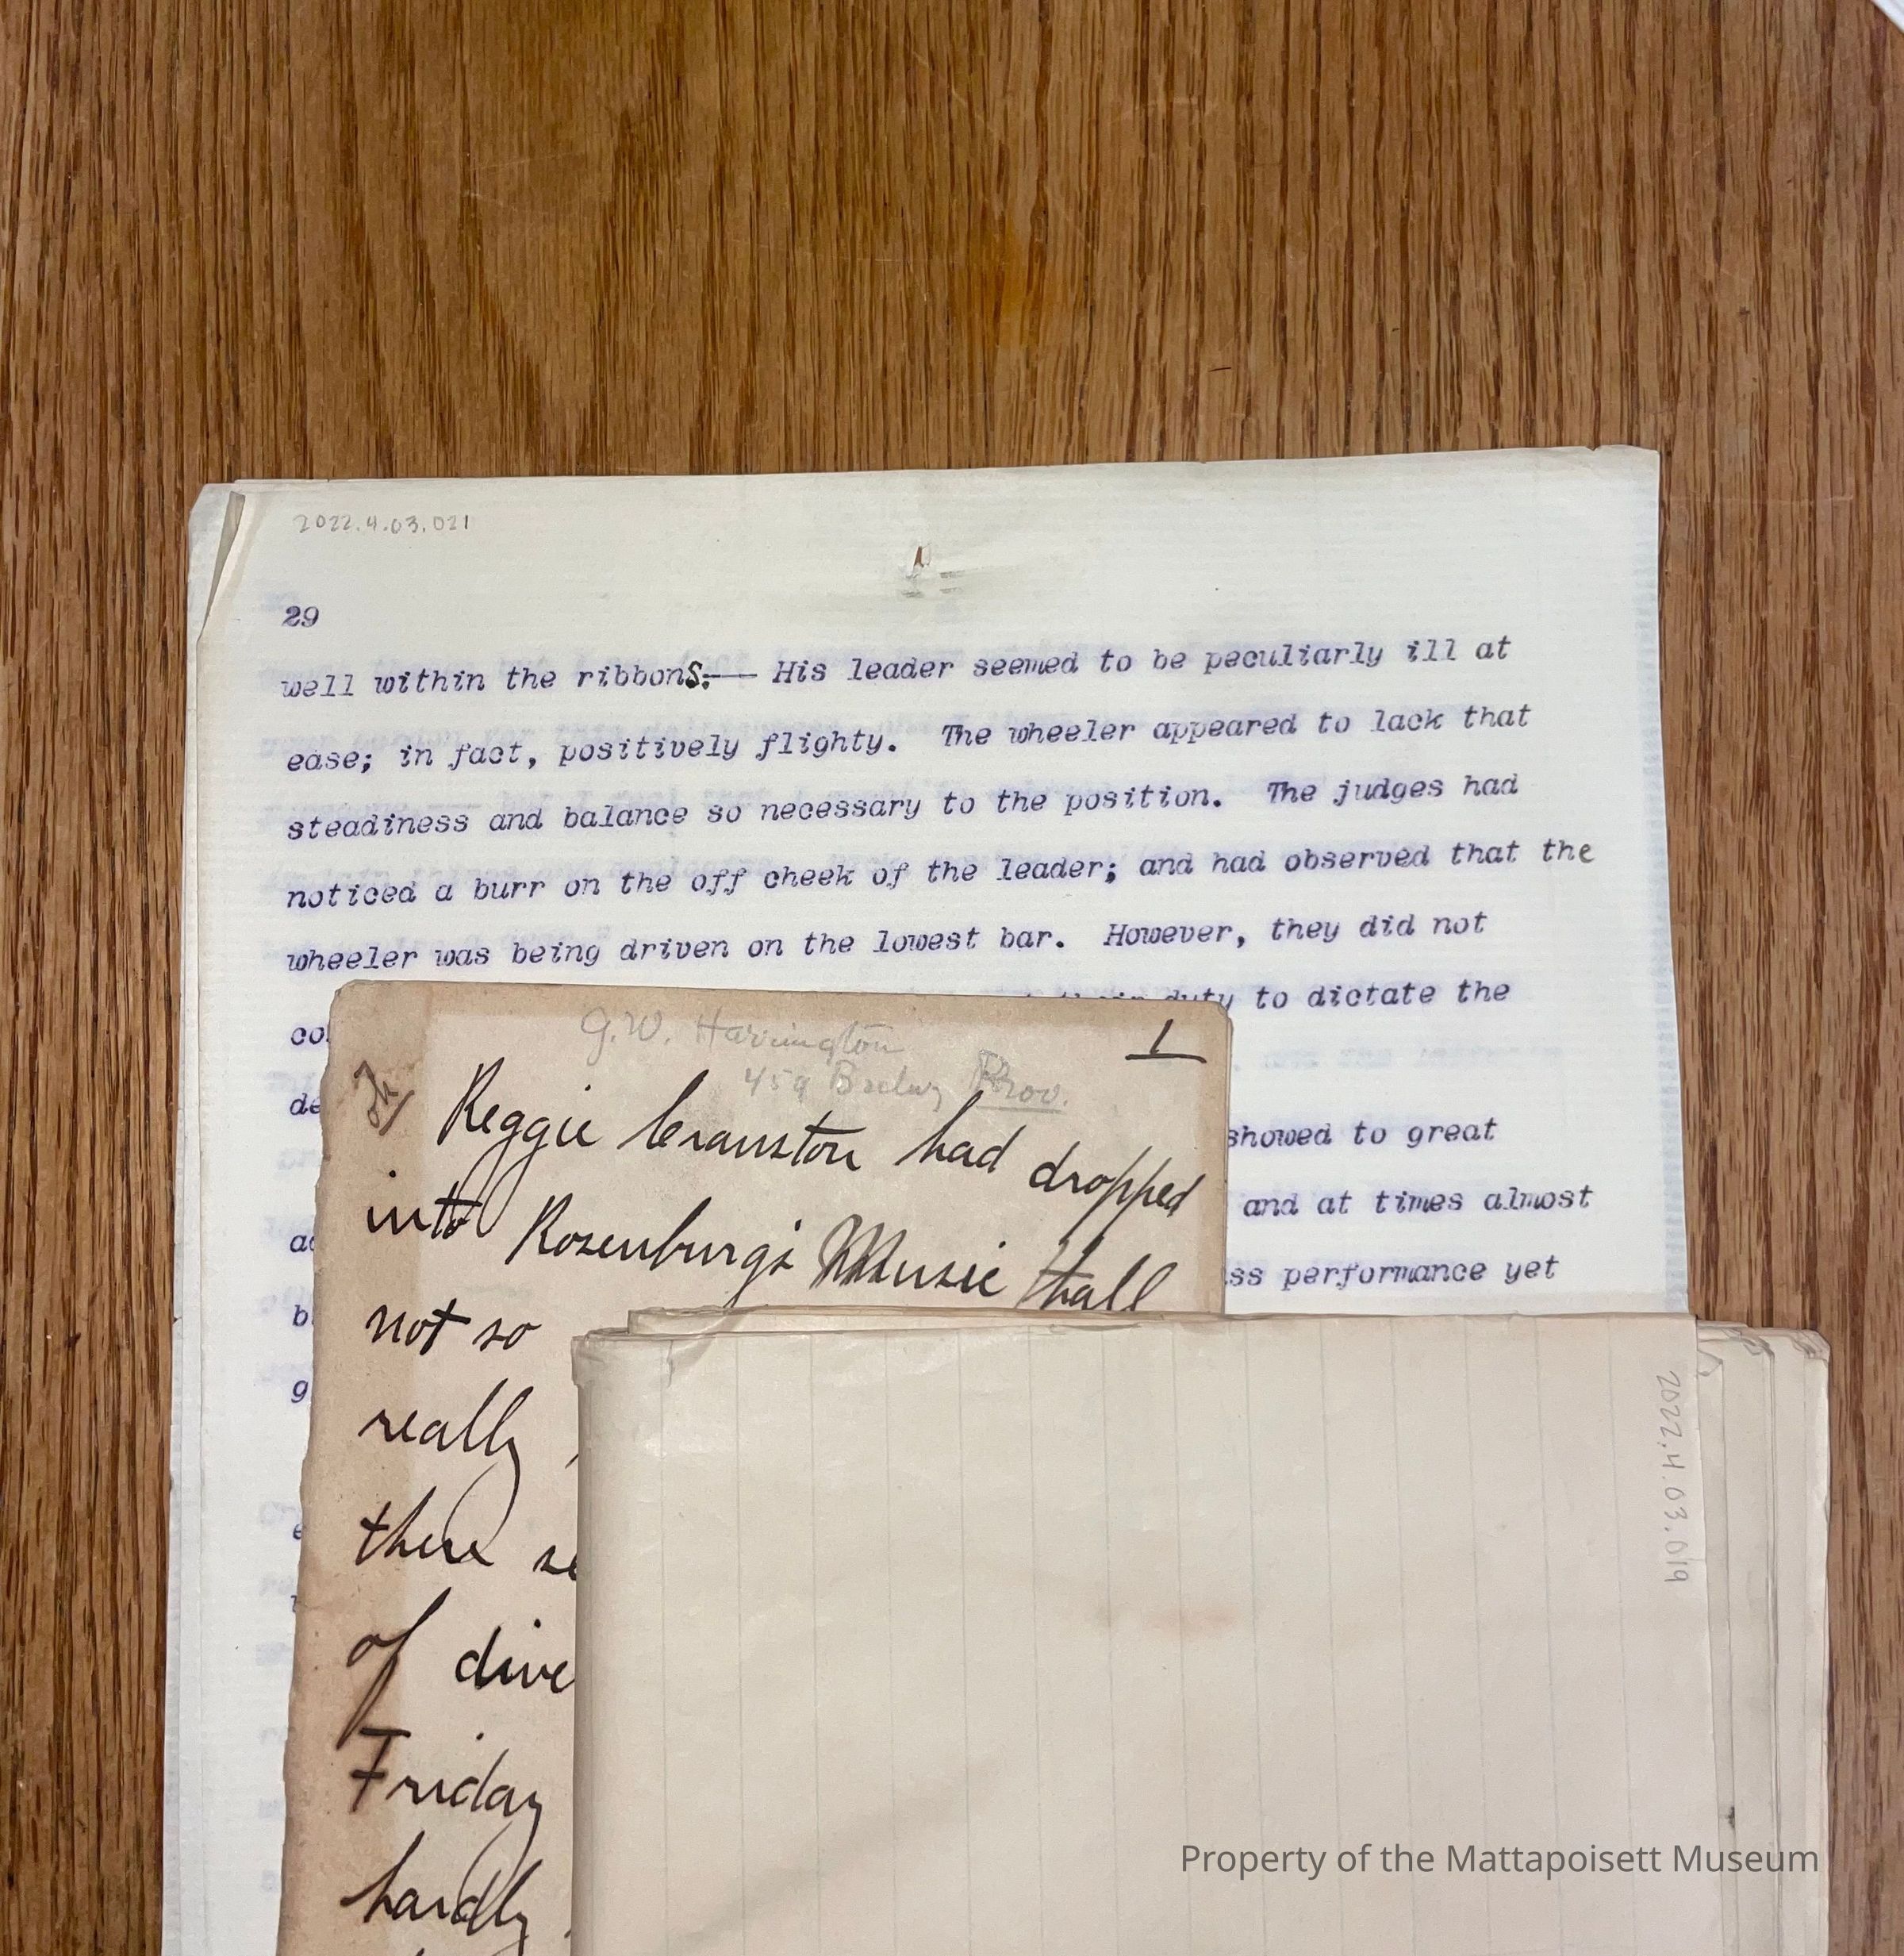 2022.4.03.021
29
well within the ribbons.— His leader seemed to be peculiarly ill at
ease; in fact, positively flighty. The wheeler appeared to lack that
steadiness and balance so necessary to the position. The judges had
noticed a burr on the off cheek of the leader; and had observed that the
wheeler was being driven on the lowest bar. However, they did not
their duty to dictate the
showed to great
and at times almost
performance yet
G.W. Harrington
1
459 Brdwy Prov.
Reggie Cranston had dropped
into Rosenburgs Music Hall
not so
really
there
of
Friday
hardly
2022.4.03.019
Property of the Mattapoisett Museum